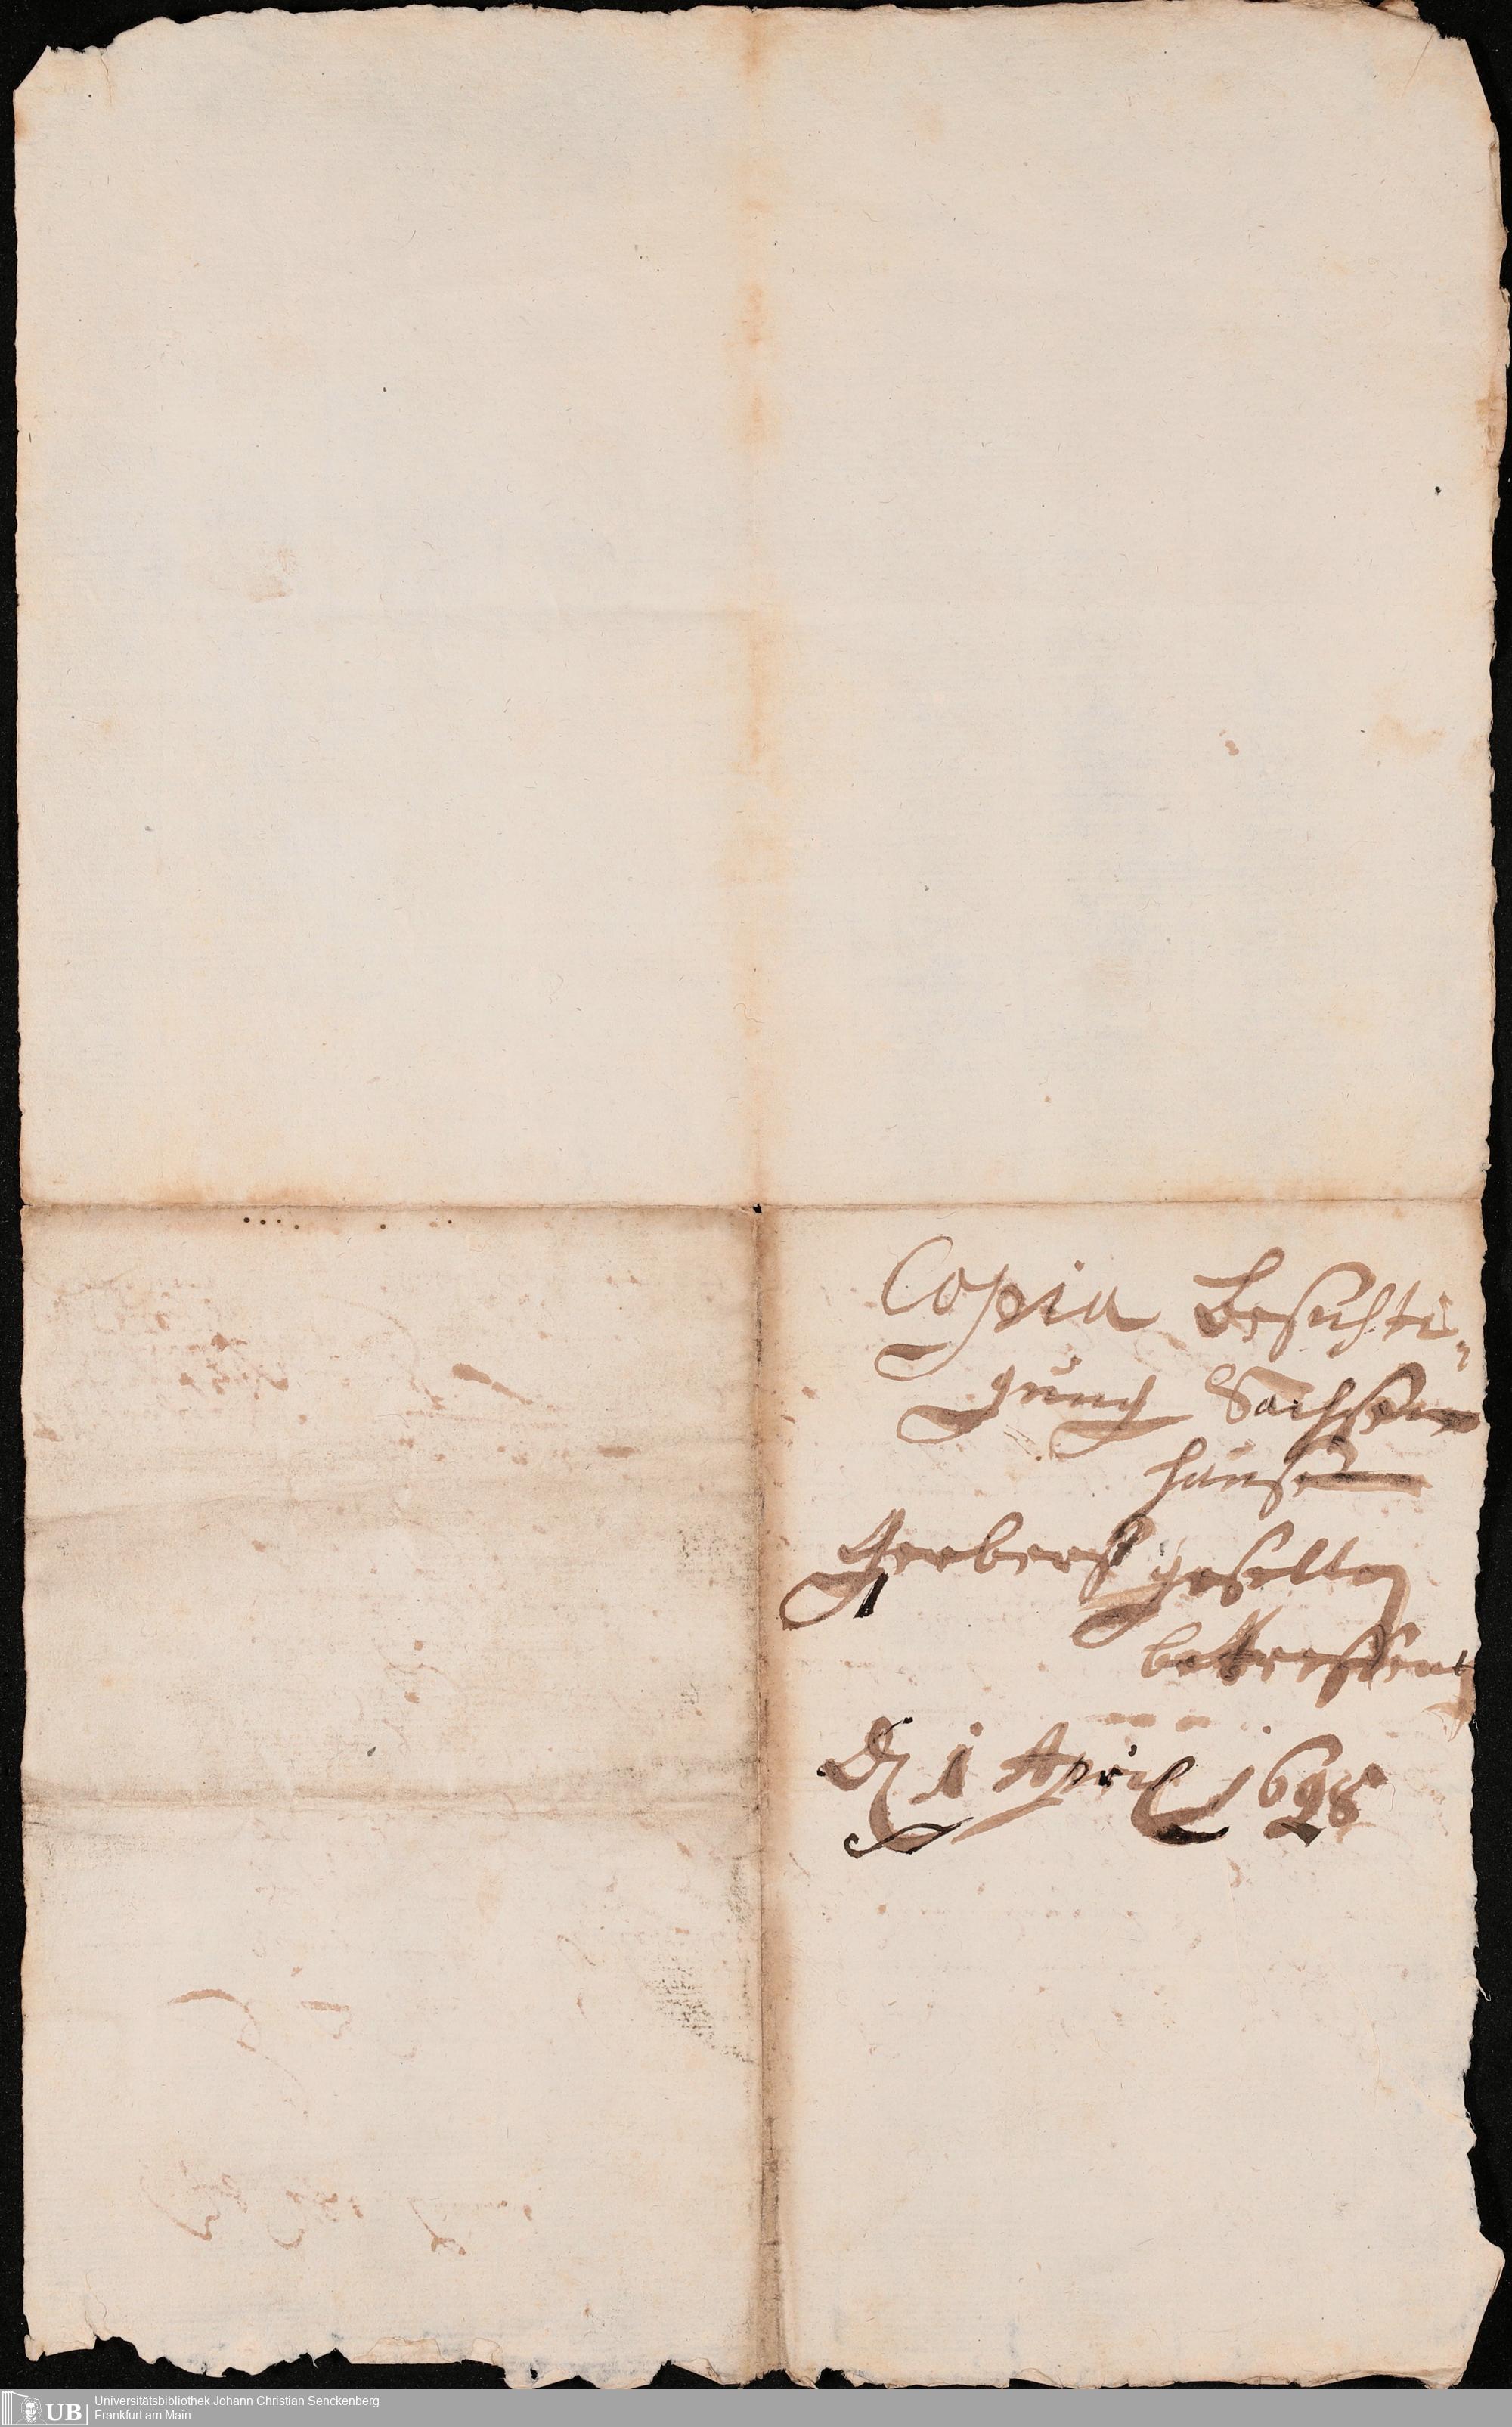 Copia Besichti„
gung Sachsen
hausen
Gerbers gesellen
betreffent
Den 1 April 1698
UB
Universitätsbibliothek Johann Christian Senckenberg
Frankfurt am Main